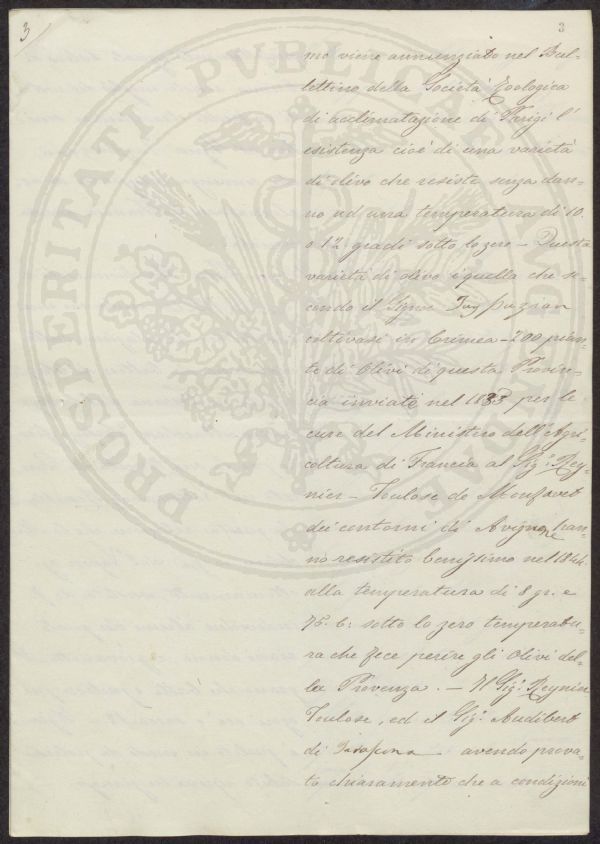 3
3
mo viene annunziato nel Bul-
lettino della Società Zoologica
di acclimatazione di Parigi l'
esistenza cioè di una varietà
di olivo che resiste senza dan-
no ad una temperatura di 10.
o 12 gradi sotto lo zero - Questa
varietà di olivo è quella che se-
condo il Signor
coltivasi in Crimea - 200 pian-
te di Olivi di questa Provin-
cia inviate nel 1833 per le
cure del Ministro dell'Agri-
coltura di Francia al Sig.r Rey-
nier - Toulose de
dei contorni di Avignone han-
no resistito benissimo nel 1844.
alla temperatura di 8 gr. e
sotto lo zero temperatu-
ra che fece perire gli Olivi del-
la Provenza. - Il Sig.r Reynier
Toulose, ed il Sig.r Audibert
di avendo prova-
to chiaramente che a condizioni
PROSPERITATI PVBLICAE AVGENDAE